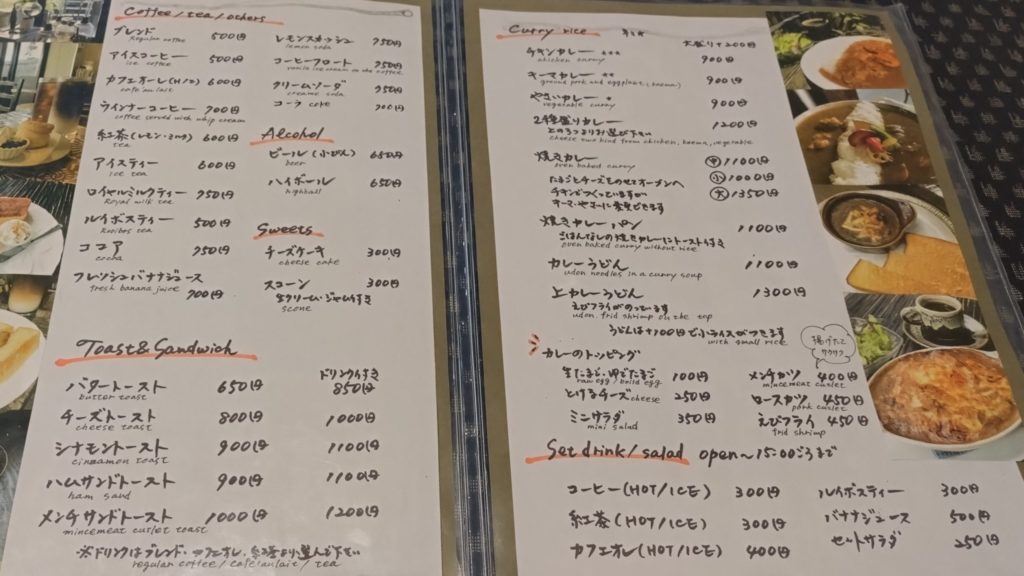 Coffee/tea/others
ブレンド 500円
Regular coffee
アイスコーヒー 500円
ice coffee
カフェオーレ(H/I) 600円
cafe au lait
ウインナーコーヒー 700円
coffee served with whip cream
紅茶(レモン・ミルク) 600円
tea
アイスティー 600円
ice tea
ロイヤルミルクティー 750円
Royal milk tea
ルイボスティー 500円
Rooibos tea
ココア 750円
cocoa
フレッシュバナナジュース
fresh banana juice 700円
レモンスカッシュ 750円
lemon soda
コーヒーフロート 750円
vanila ice cream on the coffee
クリームソーダ 750円
creame soda
コーラ coke 700円
Alcohol
ビール(小びん) 650円
beer
ハイボール 650円
highball
Sweets
チーズケーキ 300円
cheese cake
スコーン 300円
生クリーム・ジャム付き
scone
Toast&Sandwich
ドリンク付き
バタートースト 650円 850円
butter toast
チーズトースト 800円 1000円
cheese toast
シナモントースト 900円 1100円
cinnamon toast
ハムサンドトースト 900円 1100円
ham sand
メンチサンドトースト 1000円 1200円
mincemeat cutlet toast
※ドリンクはブレンド、カフェオレ、紅茶より選んで下さい
regular coffee / café au lait / tea
Curry rice 大盛り+200円
チキンカレー ** 900円
chicken curry
キーマカレー ** 900円
ground pork and eggplant (keema)
やさいカレー * 900円
vegetable curry
2種盛りカレー 1200円
上の3つよりお選び下さい
cheese two kind from chicken, keema, vegetable
焼きカレー 中 1100円
oven baked curry
小 1000円
たまごとチーズをのせてオーブンへ
大 1350円
チキンでつくっていますが
キーマ・やさいに変更できます
焼きカレーパン 1100円
ごはんなしの焼きカレーにトースト付き
oven baked curry without rice
カレーうどん 1100円
udon noodles in a curry soup
上カレーうどん 1300円
えびフライがのっています
udon, frid shrimp on the top
うどんは+100円で小ライスがつきます
with small rice
カレーのトッピング
揚げたて
サクサク
生たまご・ゆでたまご 100円
raw egg / boild egg
とけるチーズ cheese 250円
ミニサラダ 350円
mini salad
メンチカツ 400円
mincemeat cutlet
ロースカツ 450円
pork cutlet
えびフライ 450円
frid shrimp
Set drink/salad open〜15:00ごろまで
コーヒー(HOT/ICE) 300円
紅茶(HOT/ICE) 300円
カフェオレ(HOT/ICE) 400円
ルイボスティー 300円
バナナジュース 500円
セットサラダ 250円